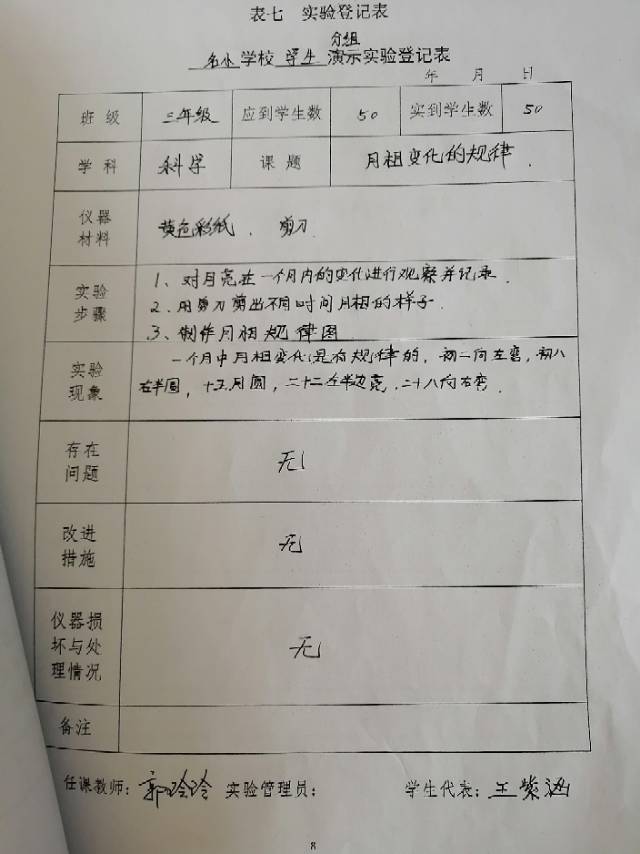 表七 实验登记表
分组
名小学校 学生 演示实验登记表
年 月 日
班级 三年级 应到学生数 50 实到学生数 50
学科 科学 课题 月相变化的规律.
仪器
材料
黄色彩纸、剪刀
实验
步骤
1、对月亮在一个月内的变化进行观察并记录.
2、用剪刀剪出不同时间月相的样子.
3、制作月相规律图
实验
现象
一个月中月相变化是有规律的,初一向左弯,初八
右半圆,十五月圆,二十二左半边亮,二十八向右弯.
存在
问题
无
改进
措施
无
仪器损
坏与处
理情况
无
备注
任课教师:郭玲玲 实验管理员: 学生代表:王紫涵
8